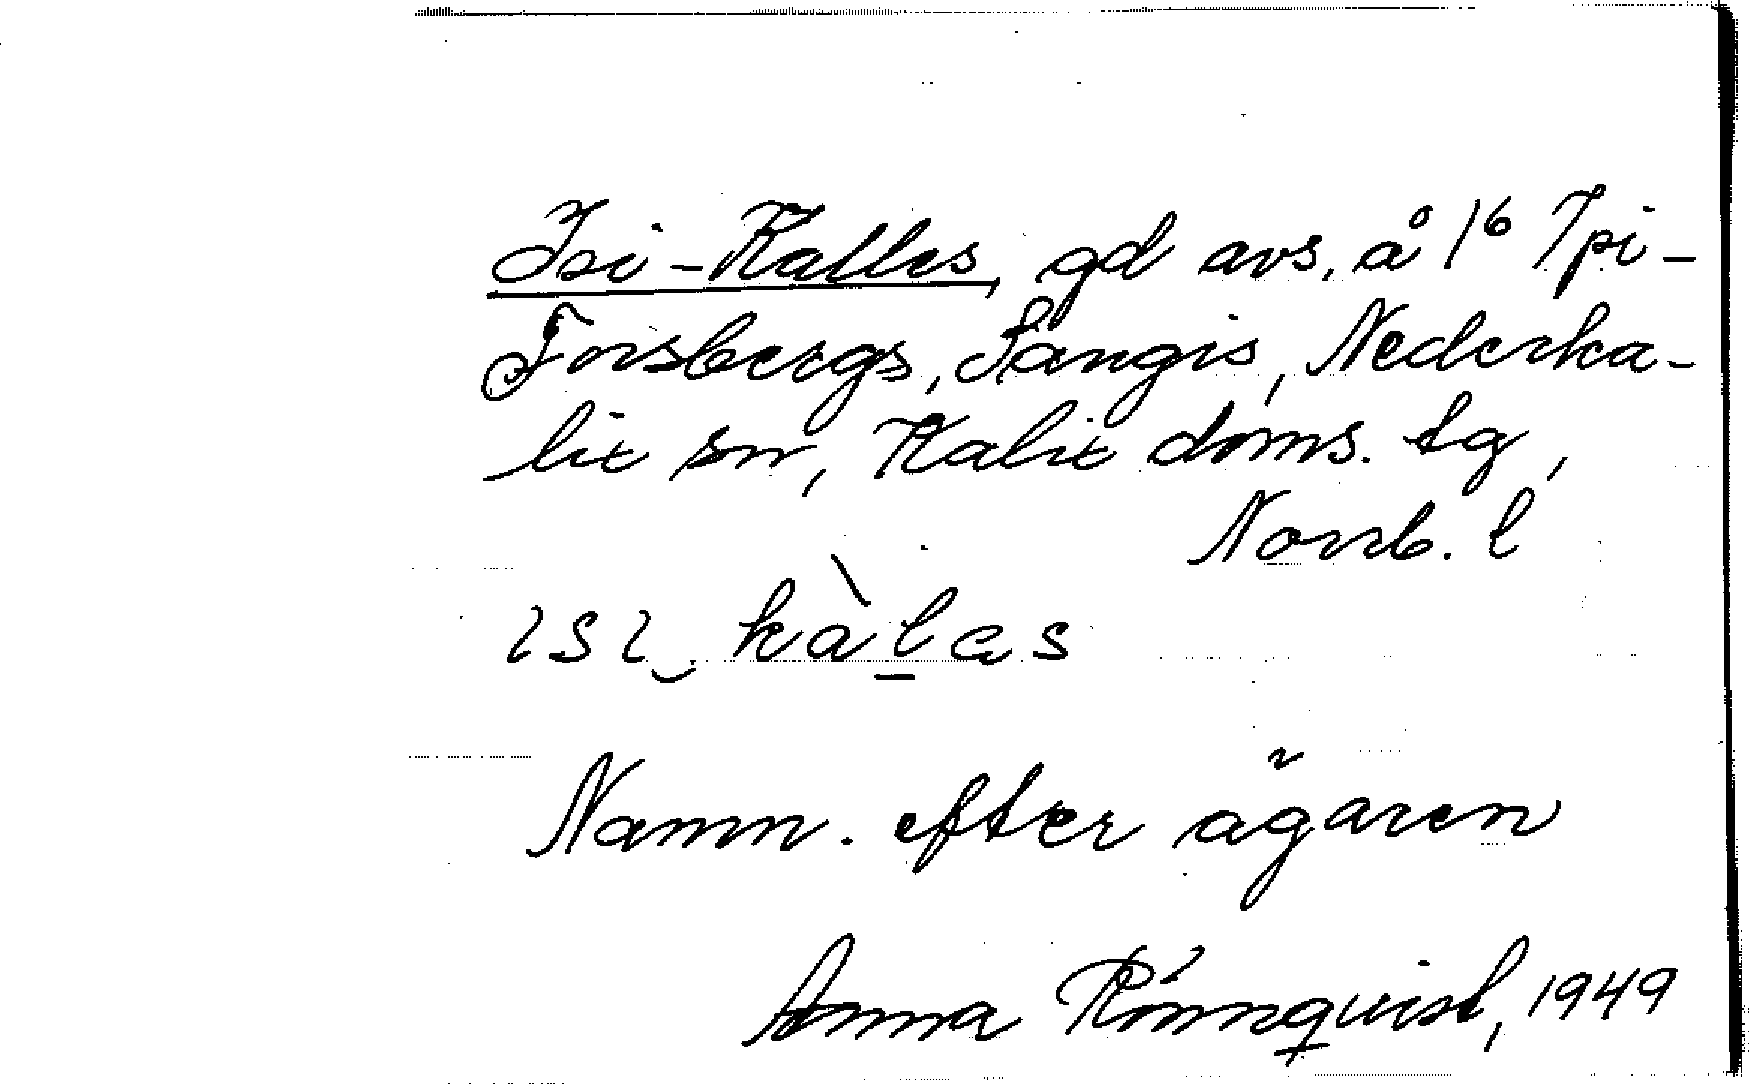 Isi-Kalles, gd avs. å 1⁶ Ipi-
Forsbergs, Sangis, Nederka-
lix sn, Kalix doms. tg,
Norrb. l
ɩsɩ‿kàl̲as
Namn. efter ägaren
Anna Rönnquist, 1949